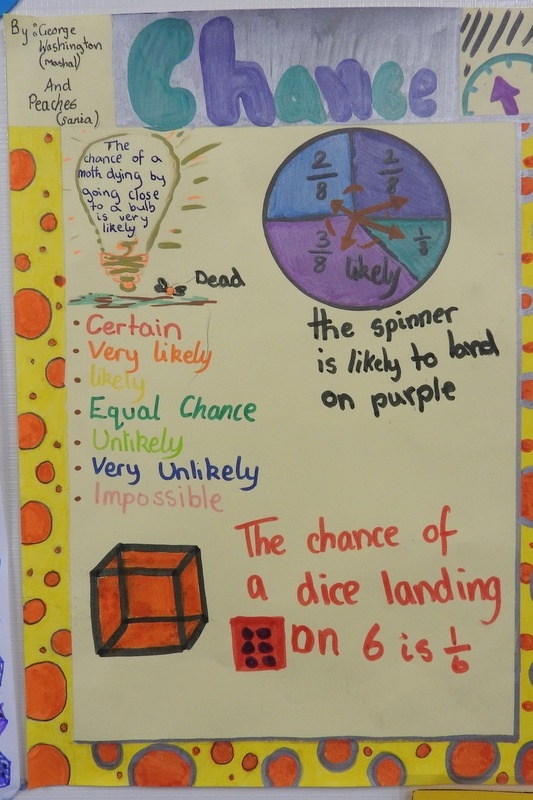 By: George
Washington
(Mashal)
And
Peaches
(sania)
Chance
The
chance of a
moth dying by
going close
to a bulb
is very
likely
Dead
2/8
2/8
3/8
1/8
likely
the spinner
is likely to land
on purple
• Certain
• Very likely
• likely
• Equal Chance
• Unlikely
• Very Unlikely
• Impossible
The chance of
a dice landing
on 6 is 1/6